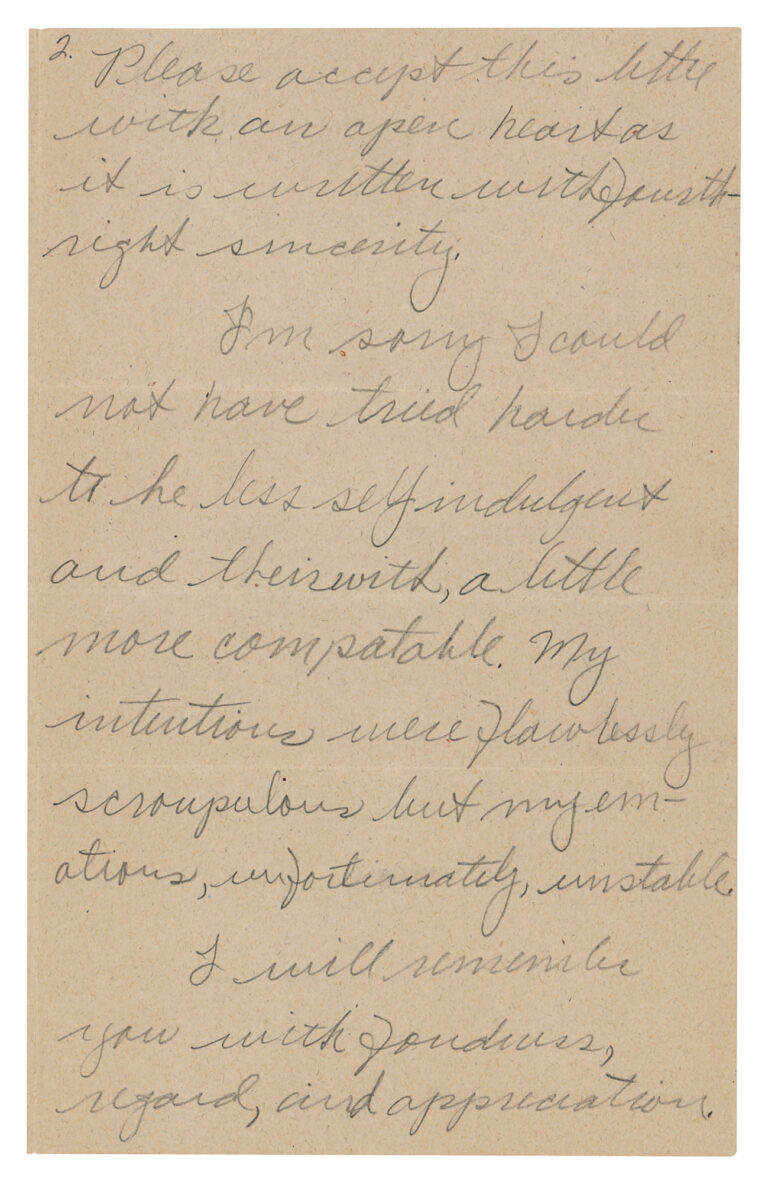 2. Please accept this little
with an open heart as
it is written with fourth-
right sincerity.
I'm sorry I could
not have tried harder
to be less self indulgent
and theirwith, a little
more compatable. My
intentions were flawlessly
scroupulous but my em-
otions, unfortunately, unstable.
I will remember
you with fondness,
regard, and appreciation.